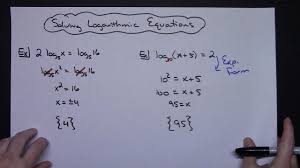 Solving Logarithmic Equations
Ex) 2 log₂₅ x = log₂₅ 16
log₂₅ x² = log₂₅ 16
x² = 16
x = ±4
{4}
Ex) log₁₀ (x+5) = 2
Exp. Form
10² = x+5
100 = x+5
95 = x
{95}